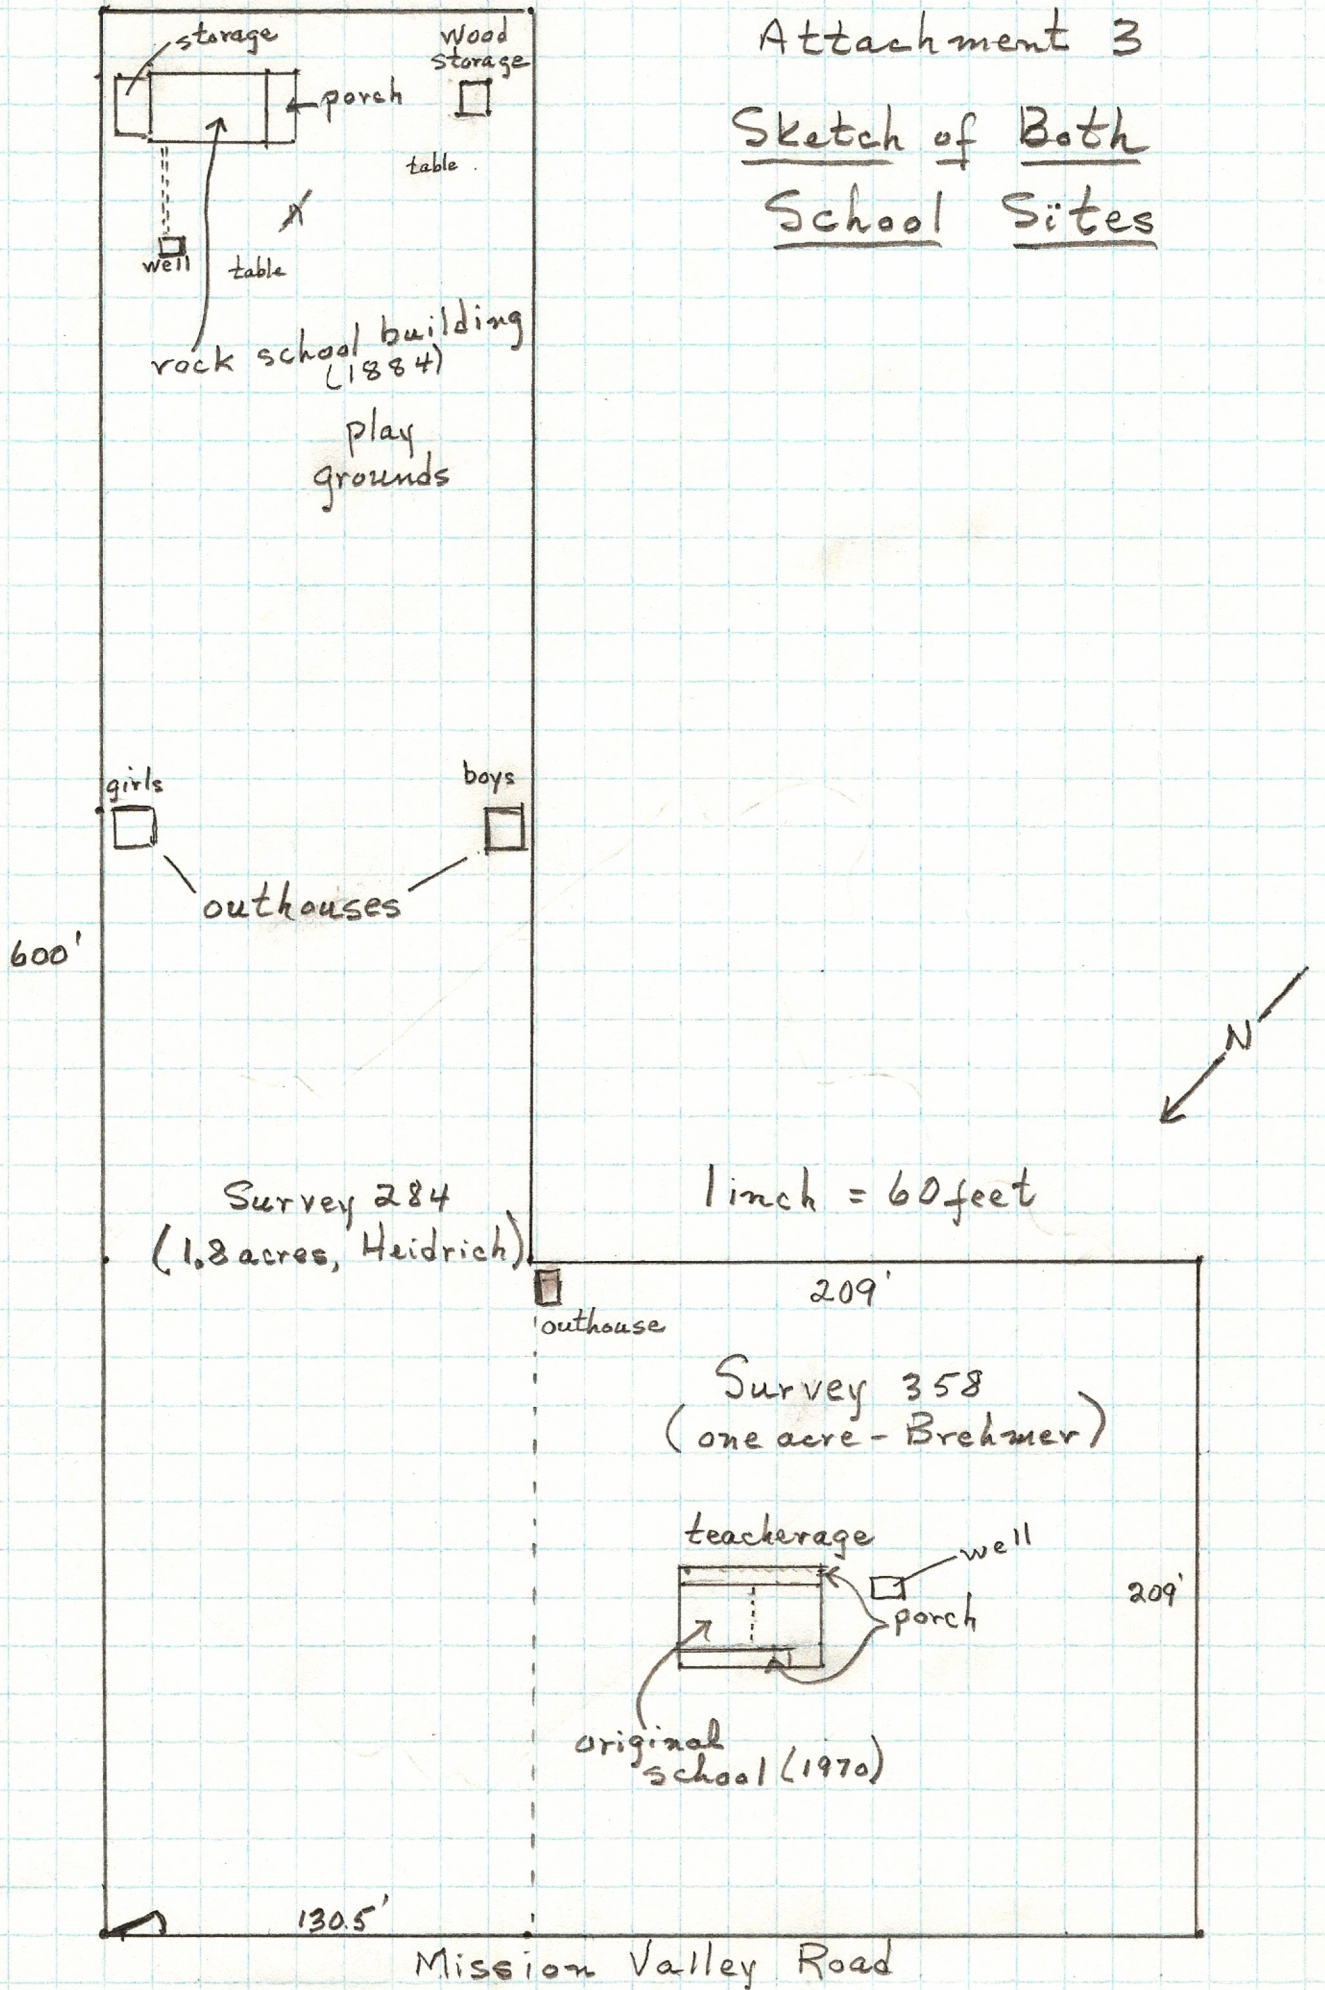 Attachment 3
Sketch of Both
School Sites
storage
Wood
storage
porch
table
well
table
rock school building
(1884)
play
grounds
girls
boys
outhouses
600'
N
Survey 284
(1.8 acres, Heidrich)
1 inch = 60 feet
209'
outhouse
Survey 358
(one acre - Brehmer)
teacherage
well
209'
porch
original
school (1970)
130.5'
Mission Valley Road